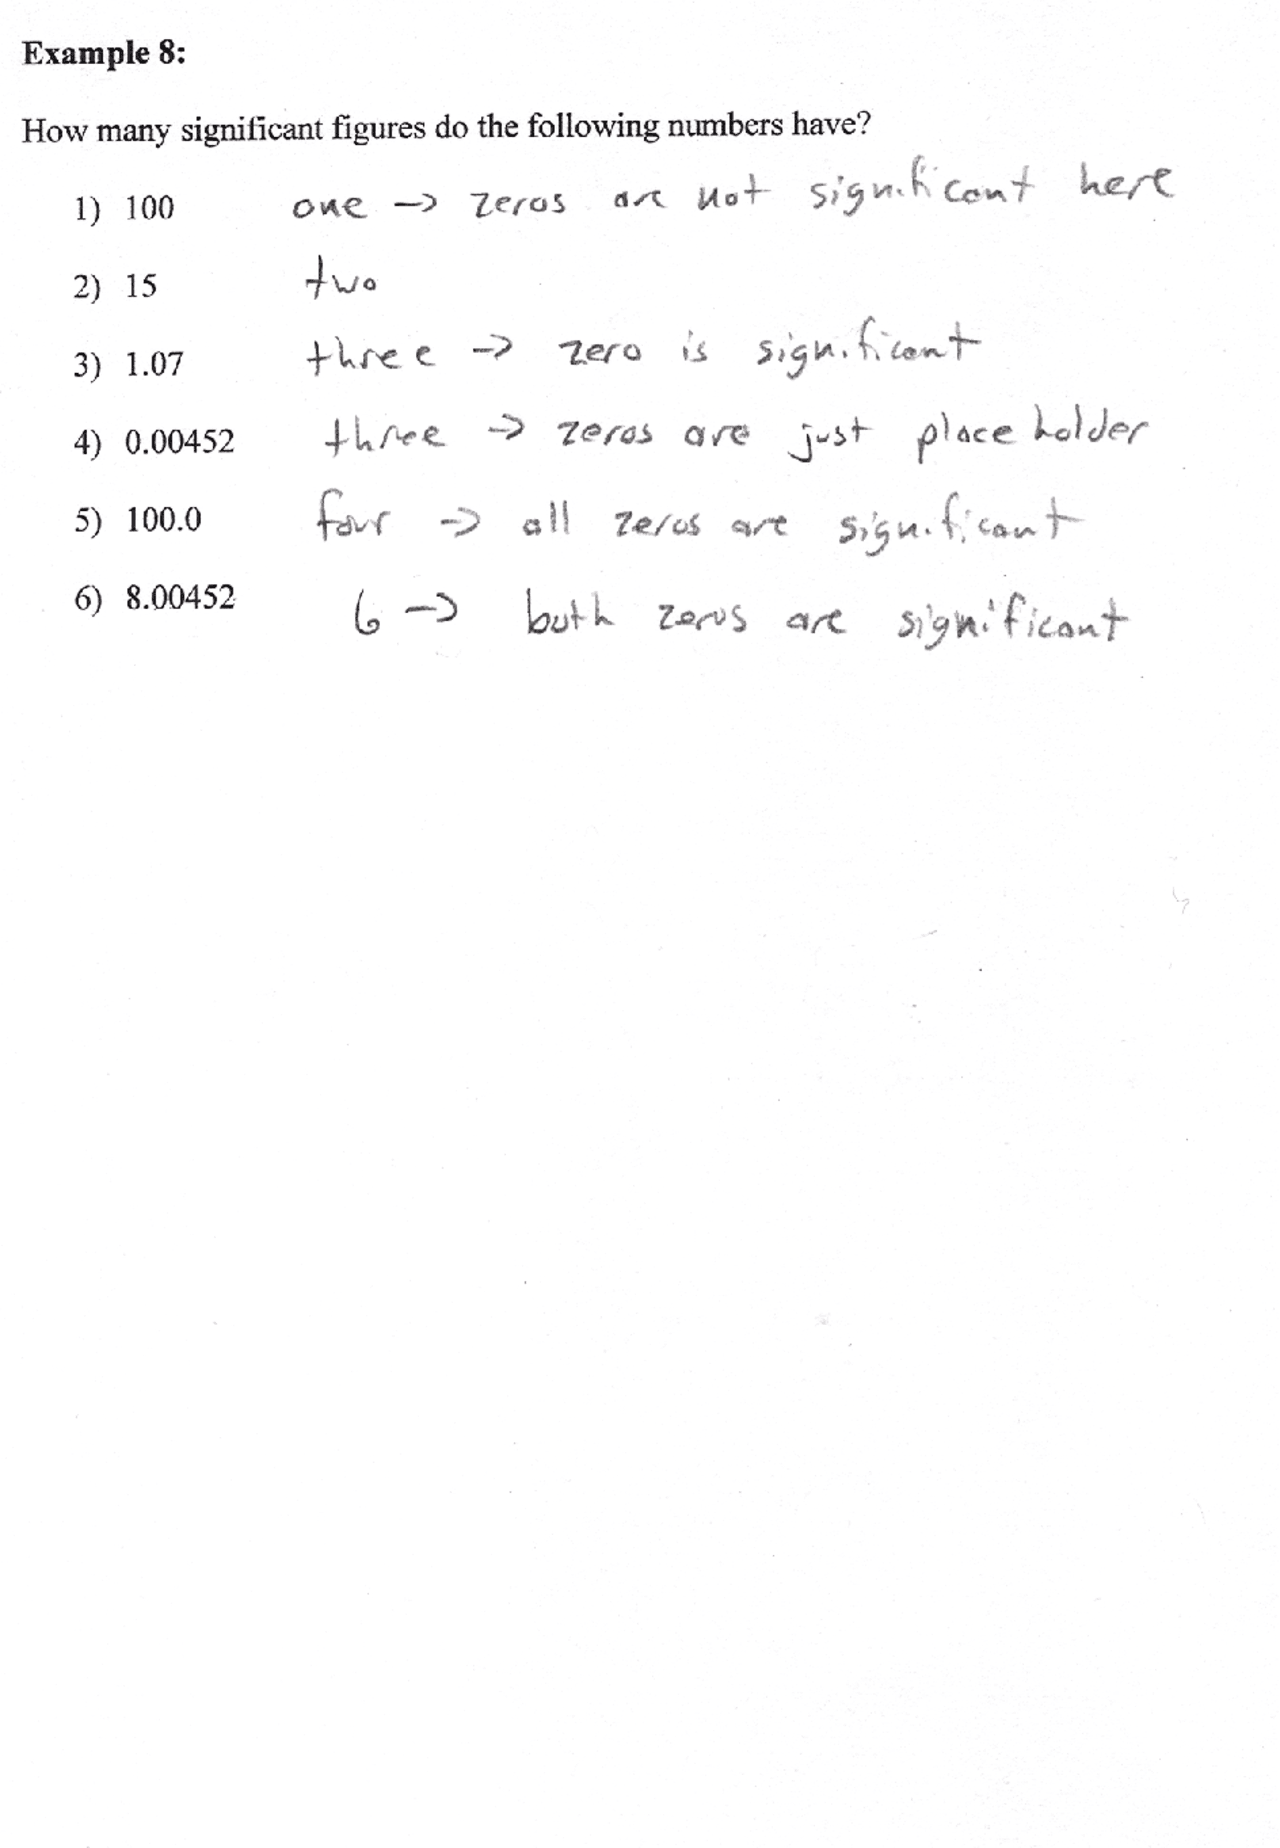 Example 8:
How many significant figures do the following numbers have?
1) 100 one -> zeros are not significant here
2) 15 two
3) 1.07 three -> zero is significant
4) 0.00452 three -> zeros are just place holder
5) 100.0 four -> all zeros are significant
6) 8.00452 6 -> both zeros are significant